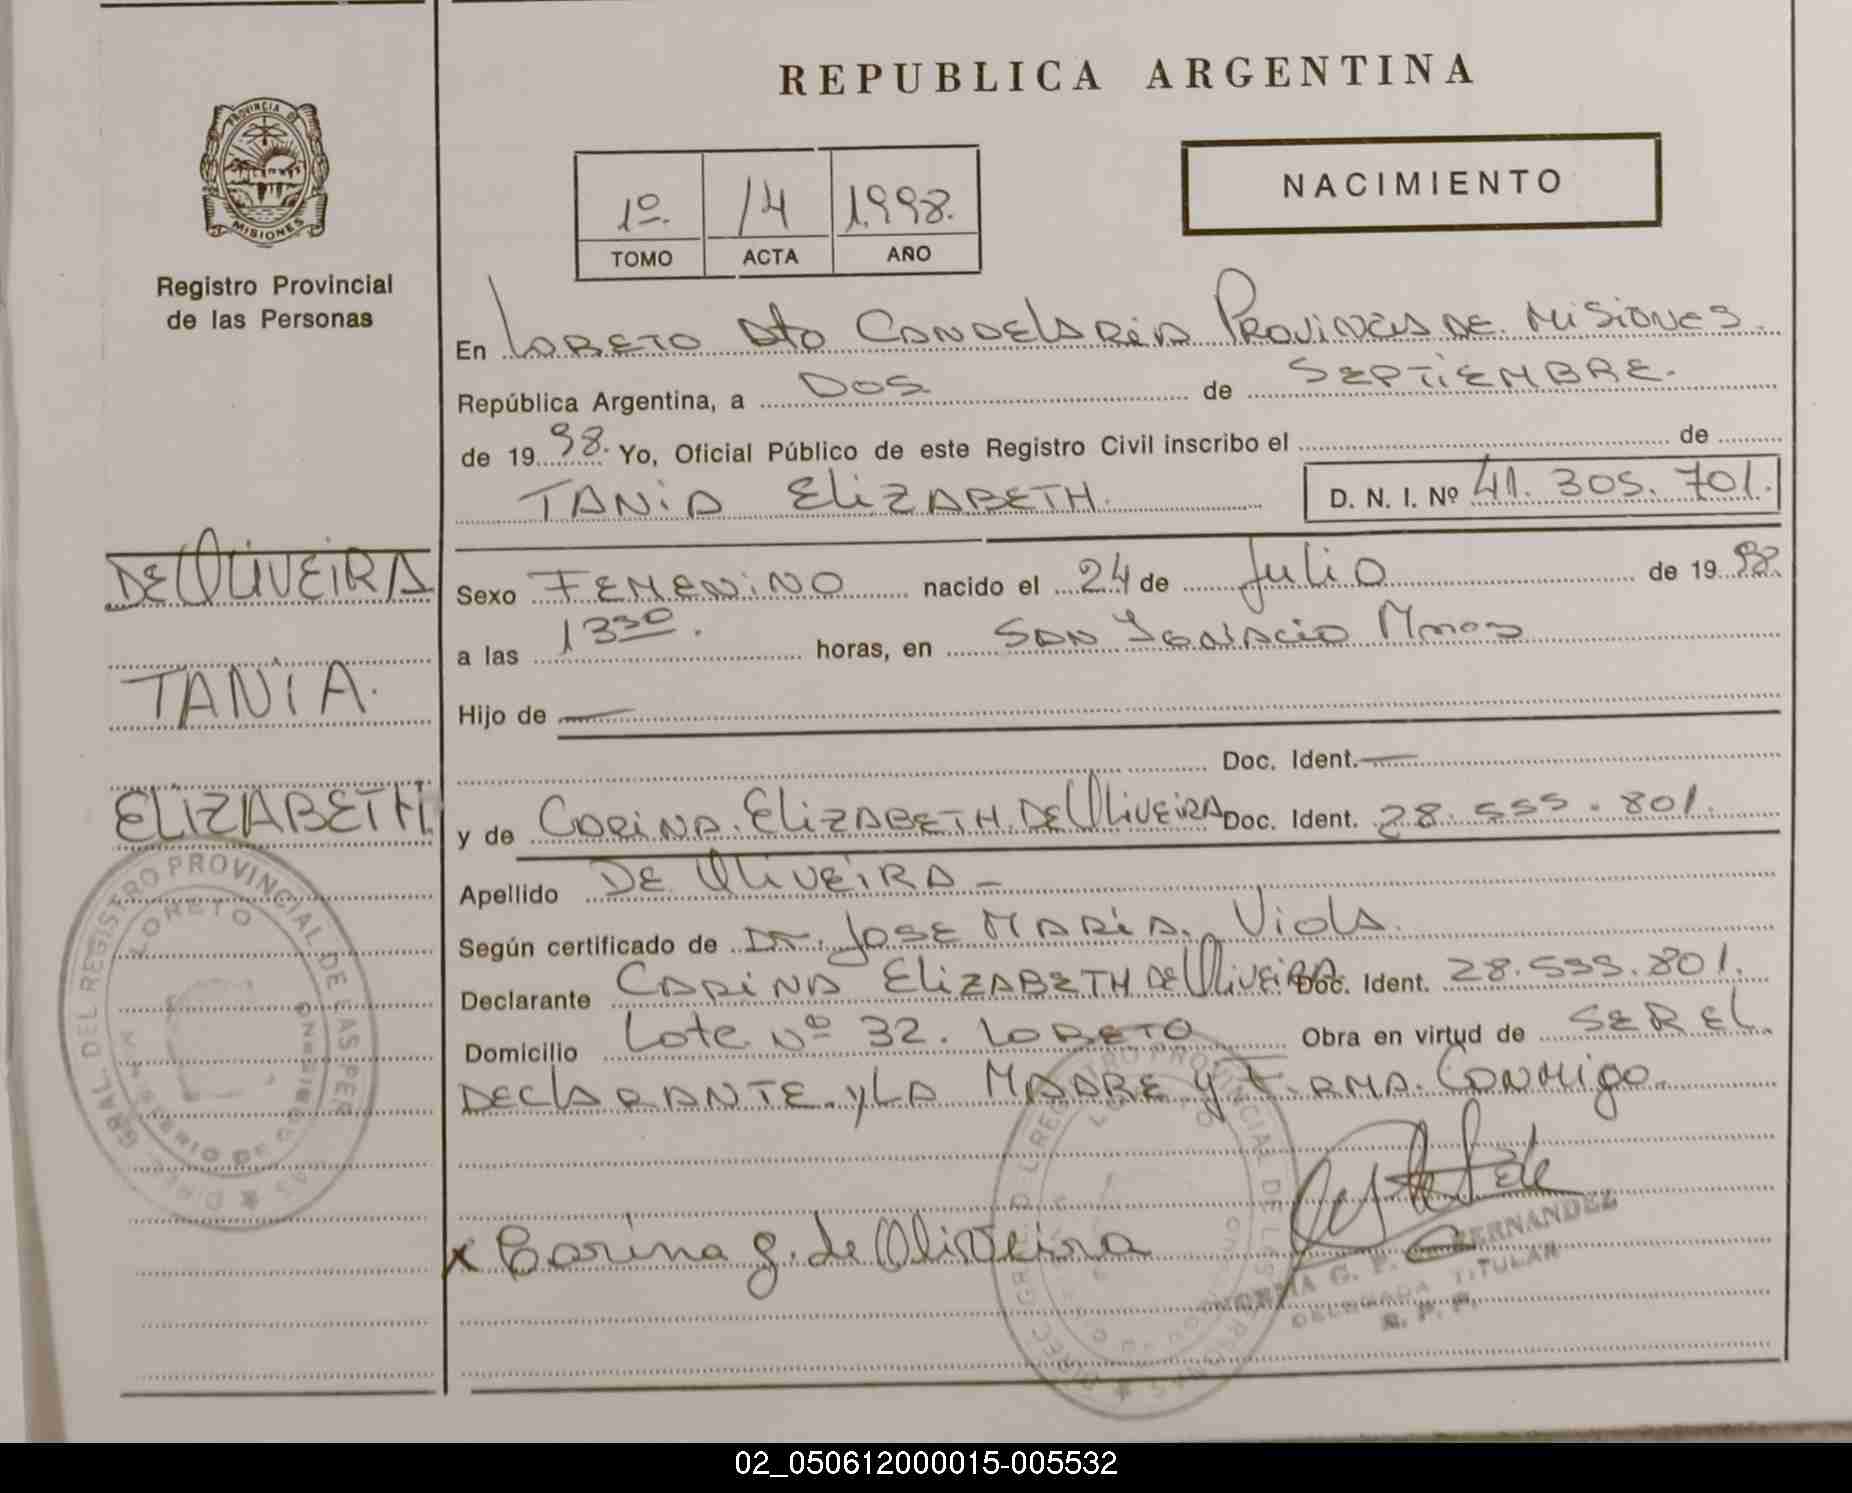 REPUBLICA ARGENTINA
PROVINCIA DE
MISIONES
Registro Provincial
de las Personas
NACIMIENTO
1º. 14 1998.
TOMO ACTA AÑO
En LORETO Dto CANDELARIA PROVINCIA DE MISIONES.
República Argentina, a DOS de SEPTIEMBRE.
de 1998. Yo, Oficial Público de este Registro Civil inscribo el de
TANIA ELIZABETH. D. N. I. Nº 41.305.701.
DE OLIVEIRA
TANIA.
ELIZABETH.
Sexo FEMENINO nacido el 24 de Julio de 1998.
a las 13 30. horas, en SAN IGNACIO Mnes
Hijo de —
Doc. Ident. —
y de CARINA. ELIZABETH. DE OLIVEIRA Doc. Ident. 28.555.801.
Apellido DE OLIVEIRA —
Según certificado de Dr. JOSE MARIA. Viola.
Declarante CARINA ELIZABETH DE OLIVEIRA Doc. Ident. 28.555.801.
Domicilio Lote Nº 32. LORETO Obra en virtud de SER EL
DECLARANTE. y LA MADRE y FIRMA. CONMIGO.
x Carina E. de Oliveira
DIREC. GRAL. DEL REGISTRO PROVINCIAL DE LAS PERSONAS
LORETO
MINISTERIO DE GOBIERNO
NORMA G. F. FERNANDEZ
DELEGADA TITULAR
R. P. P.
02_050612000015-005532